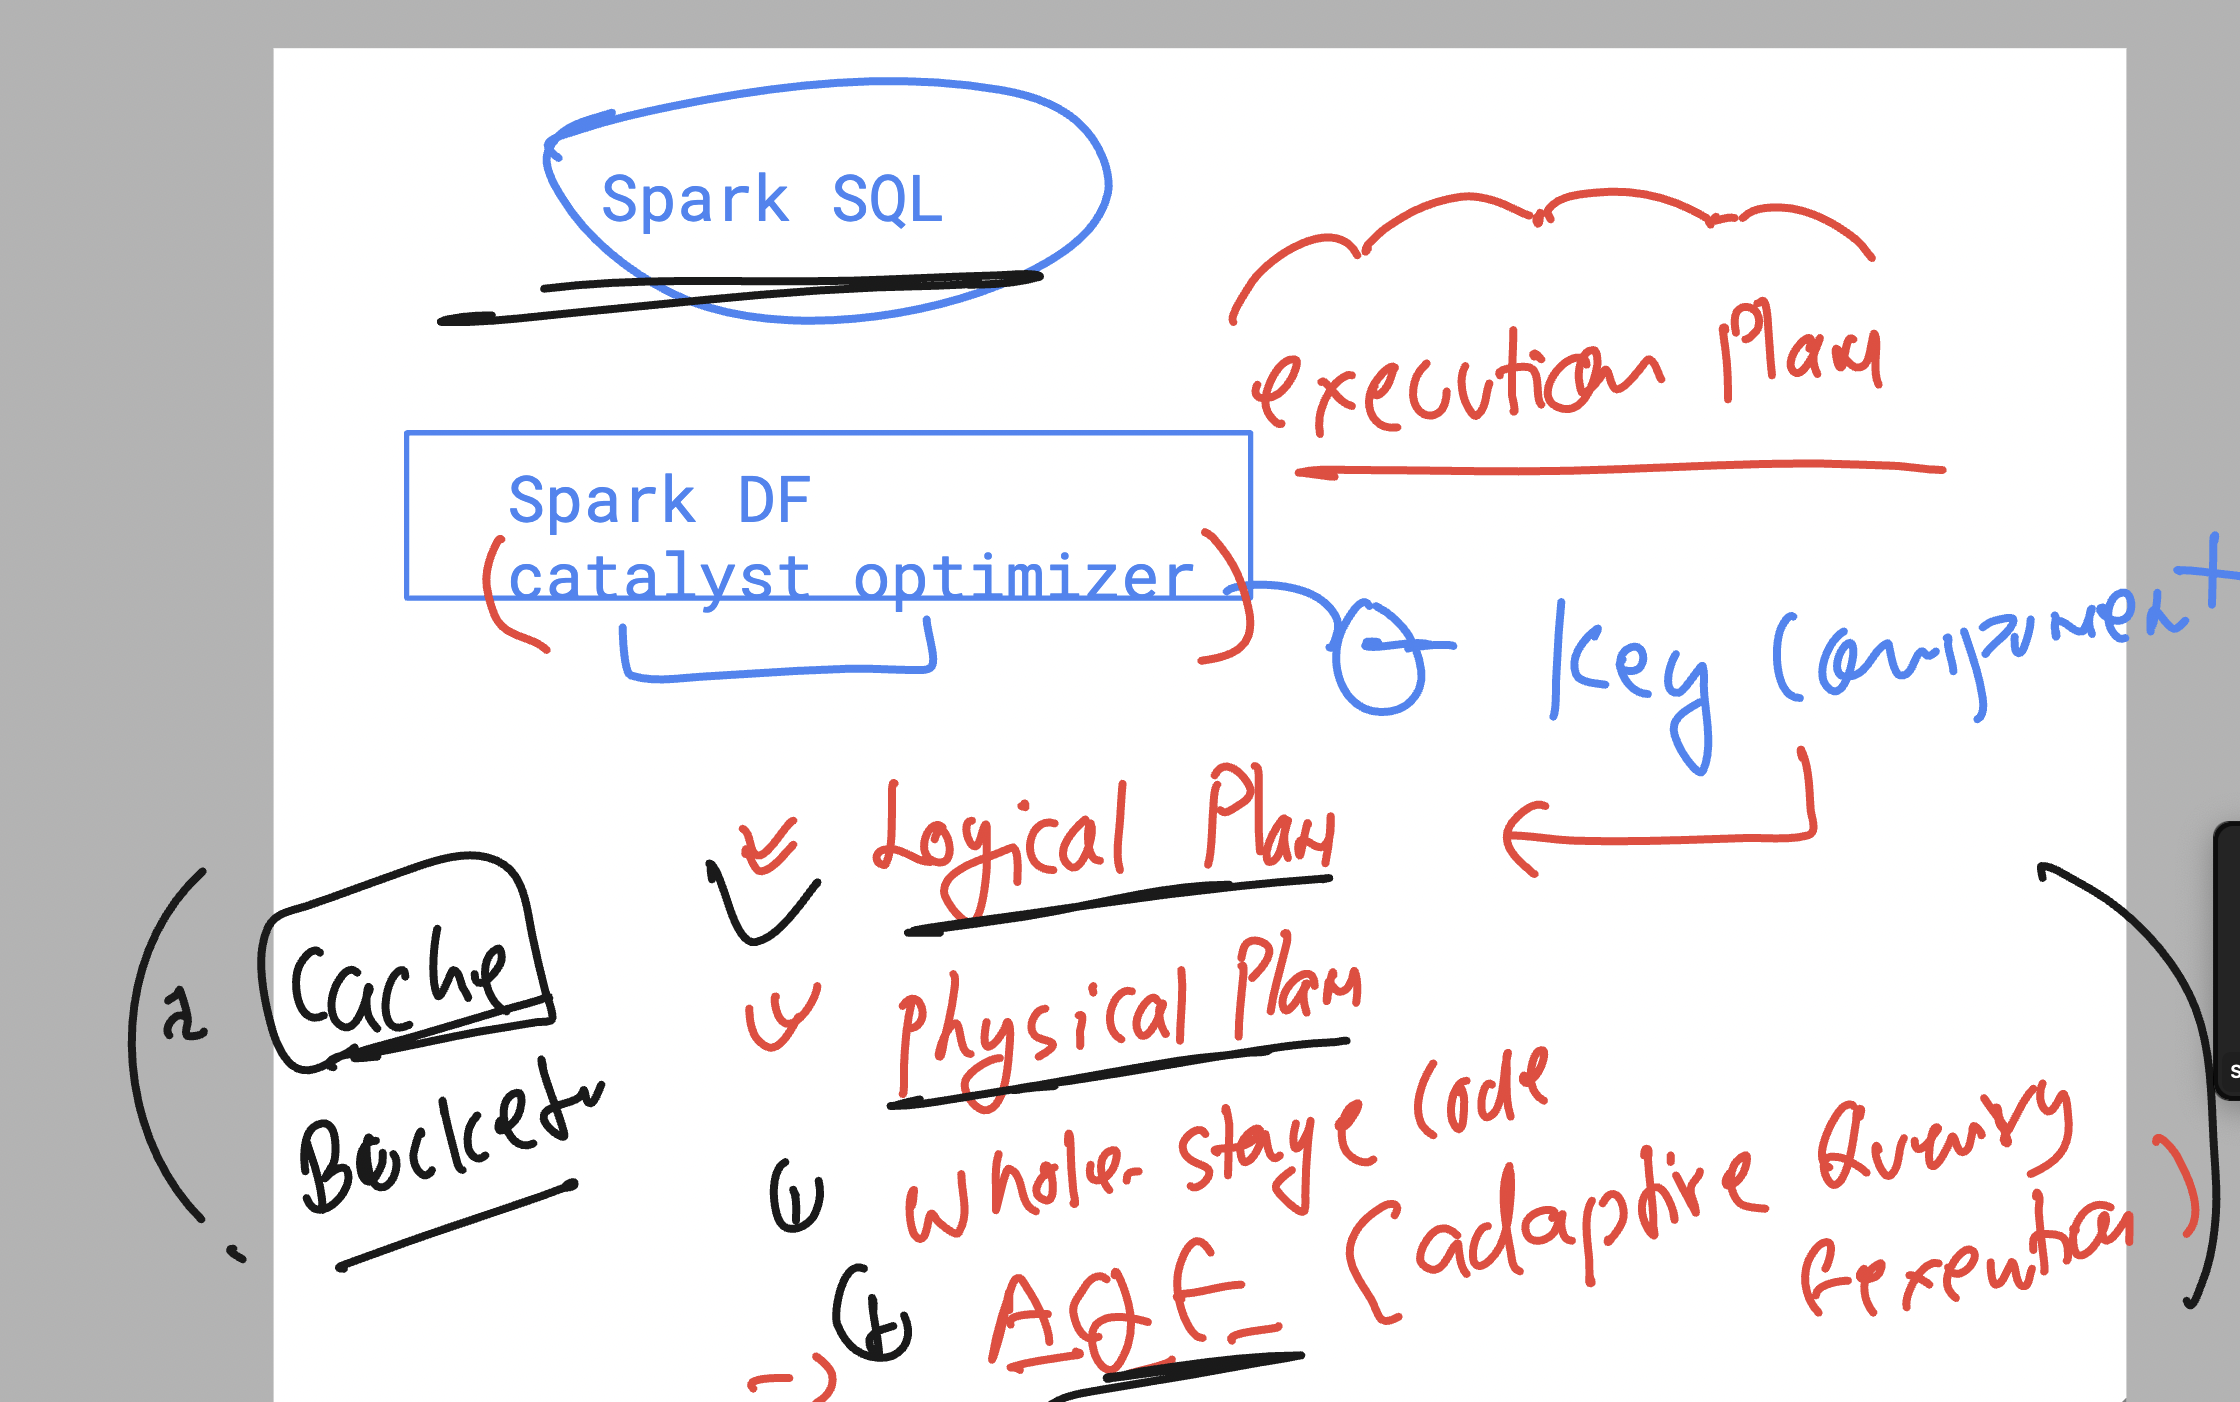 Spark SQL
execution Plan
Spark DF
catalyst optimizer
Key Component
Logical Plan
Cache
Physical Plan
Bucket
whole stage code
AQE (adaptive Query
Execution)